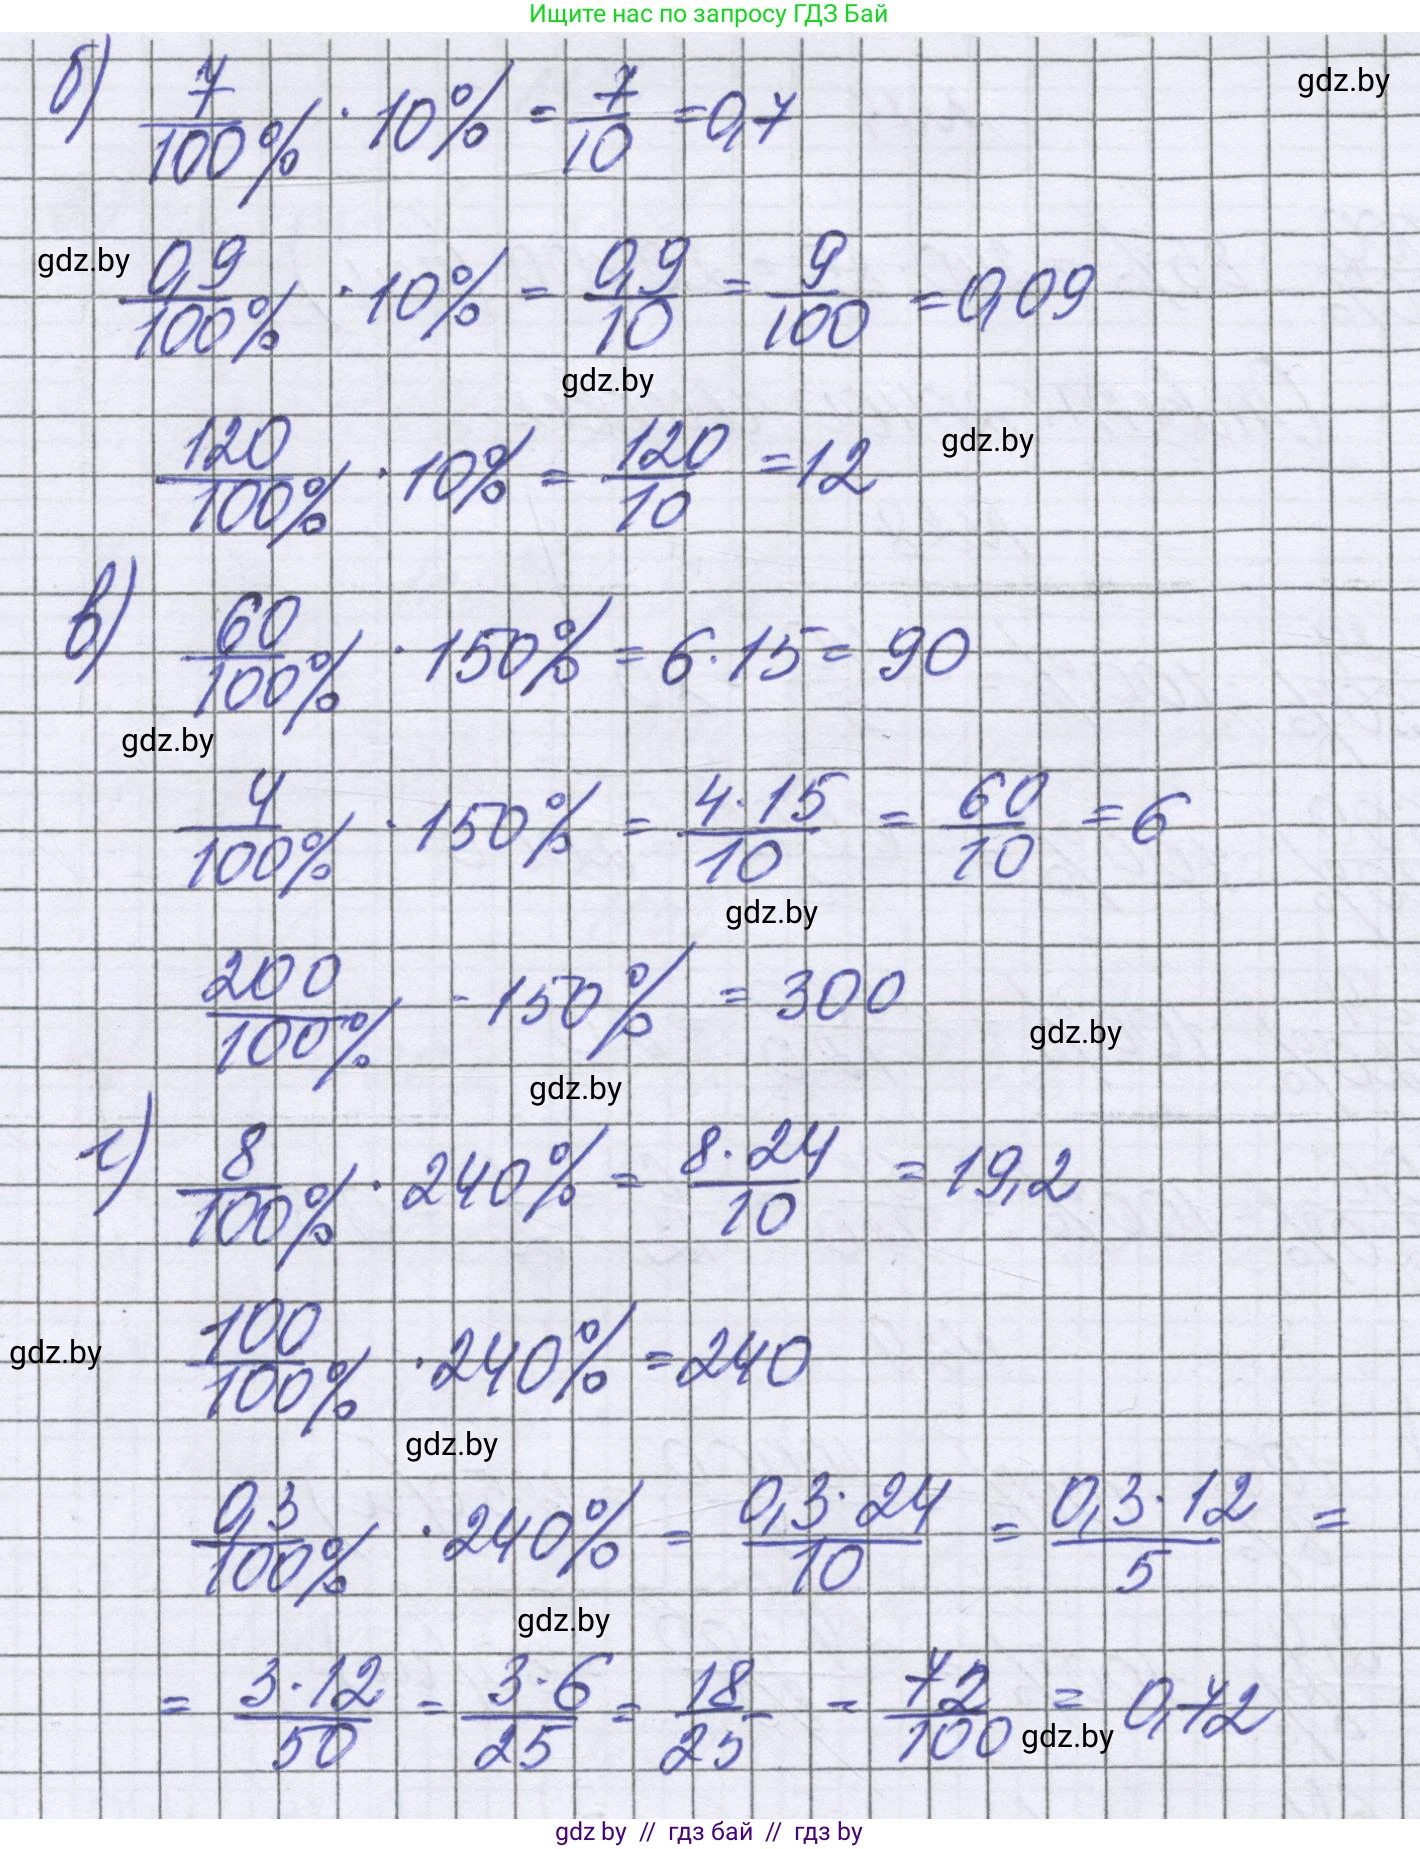 Ищите нас по запросу ГДЗ Бай
gdz.by
б) 7/100% · 10% = 7/10 = 0,7
gdz.by
0,9/100% · 10% = 0,9/10 = 9/100 = 0,09
gdz.by
gdz.by
120/100% · 10% = 120/10 = 12
в) 60/100% · 150% = 6 · 15 = 90
gdz.by
4/100% · 150% = 4 · 15/10 = 60/10 = 6
gdz.by
200/100% · 150% = 300
gdz.by
gdz.by
г) 8/100% · 240% = 8 · 24/10 = 19,2
100/100% · 240% = 240
gdz.by
gdz.by
0,3/100% · 240% = 0,3 · 24/10 = 0,3 · 12/5 =
gdz.by
= 3 · 12/50 = 3 · 6/25 = 18/25 = 72/100 = 0,72
gdz.by
gdz by // гдз бай // гдз by